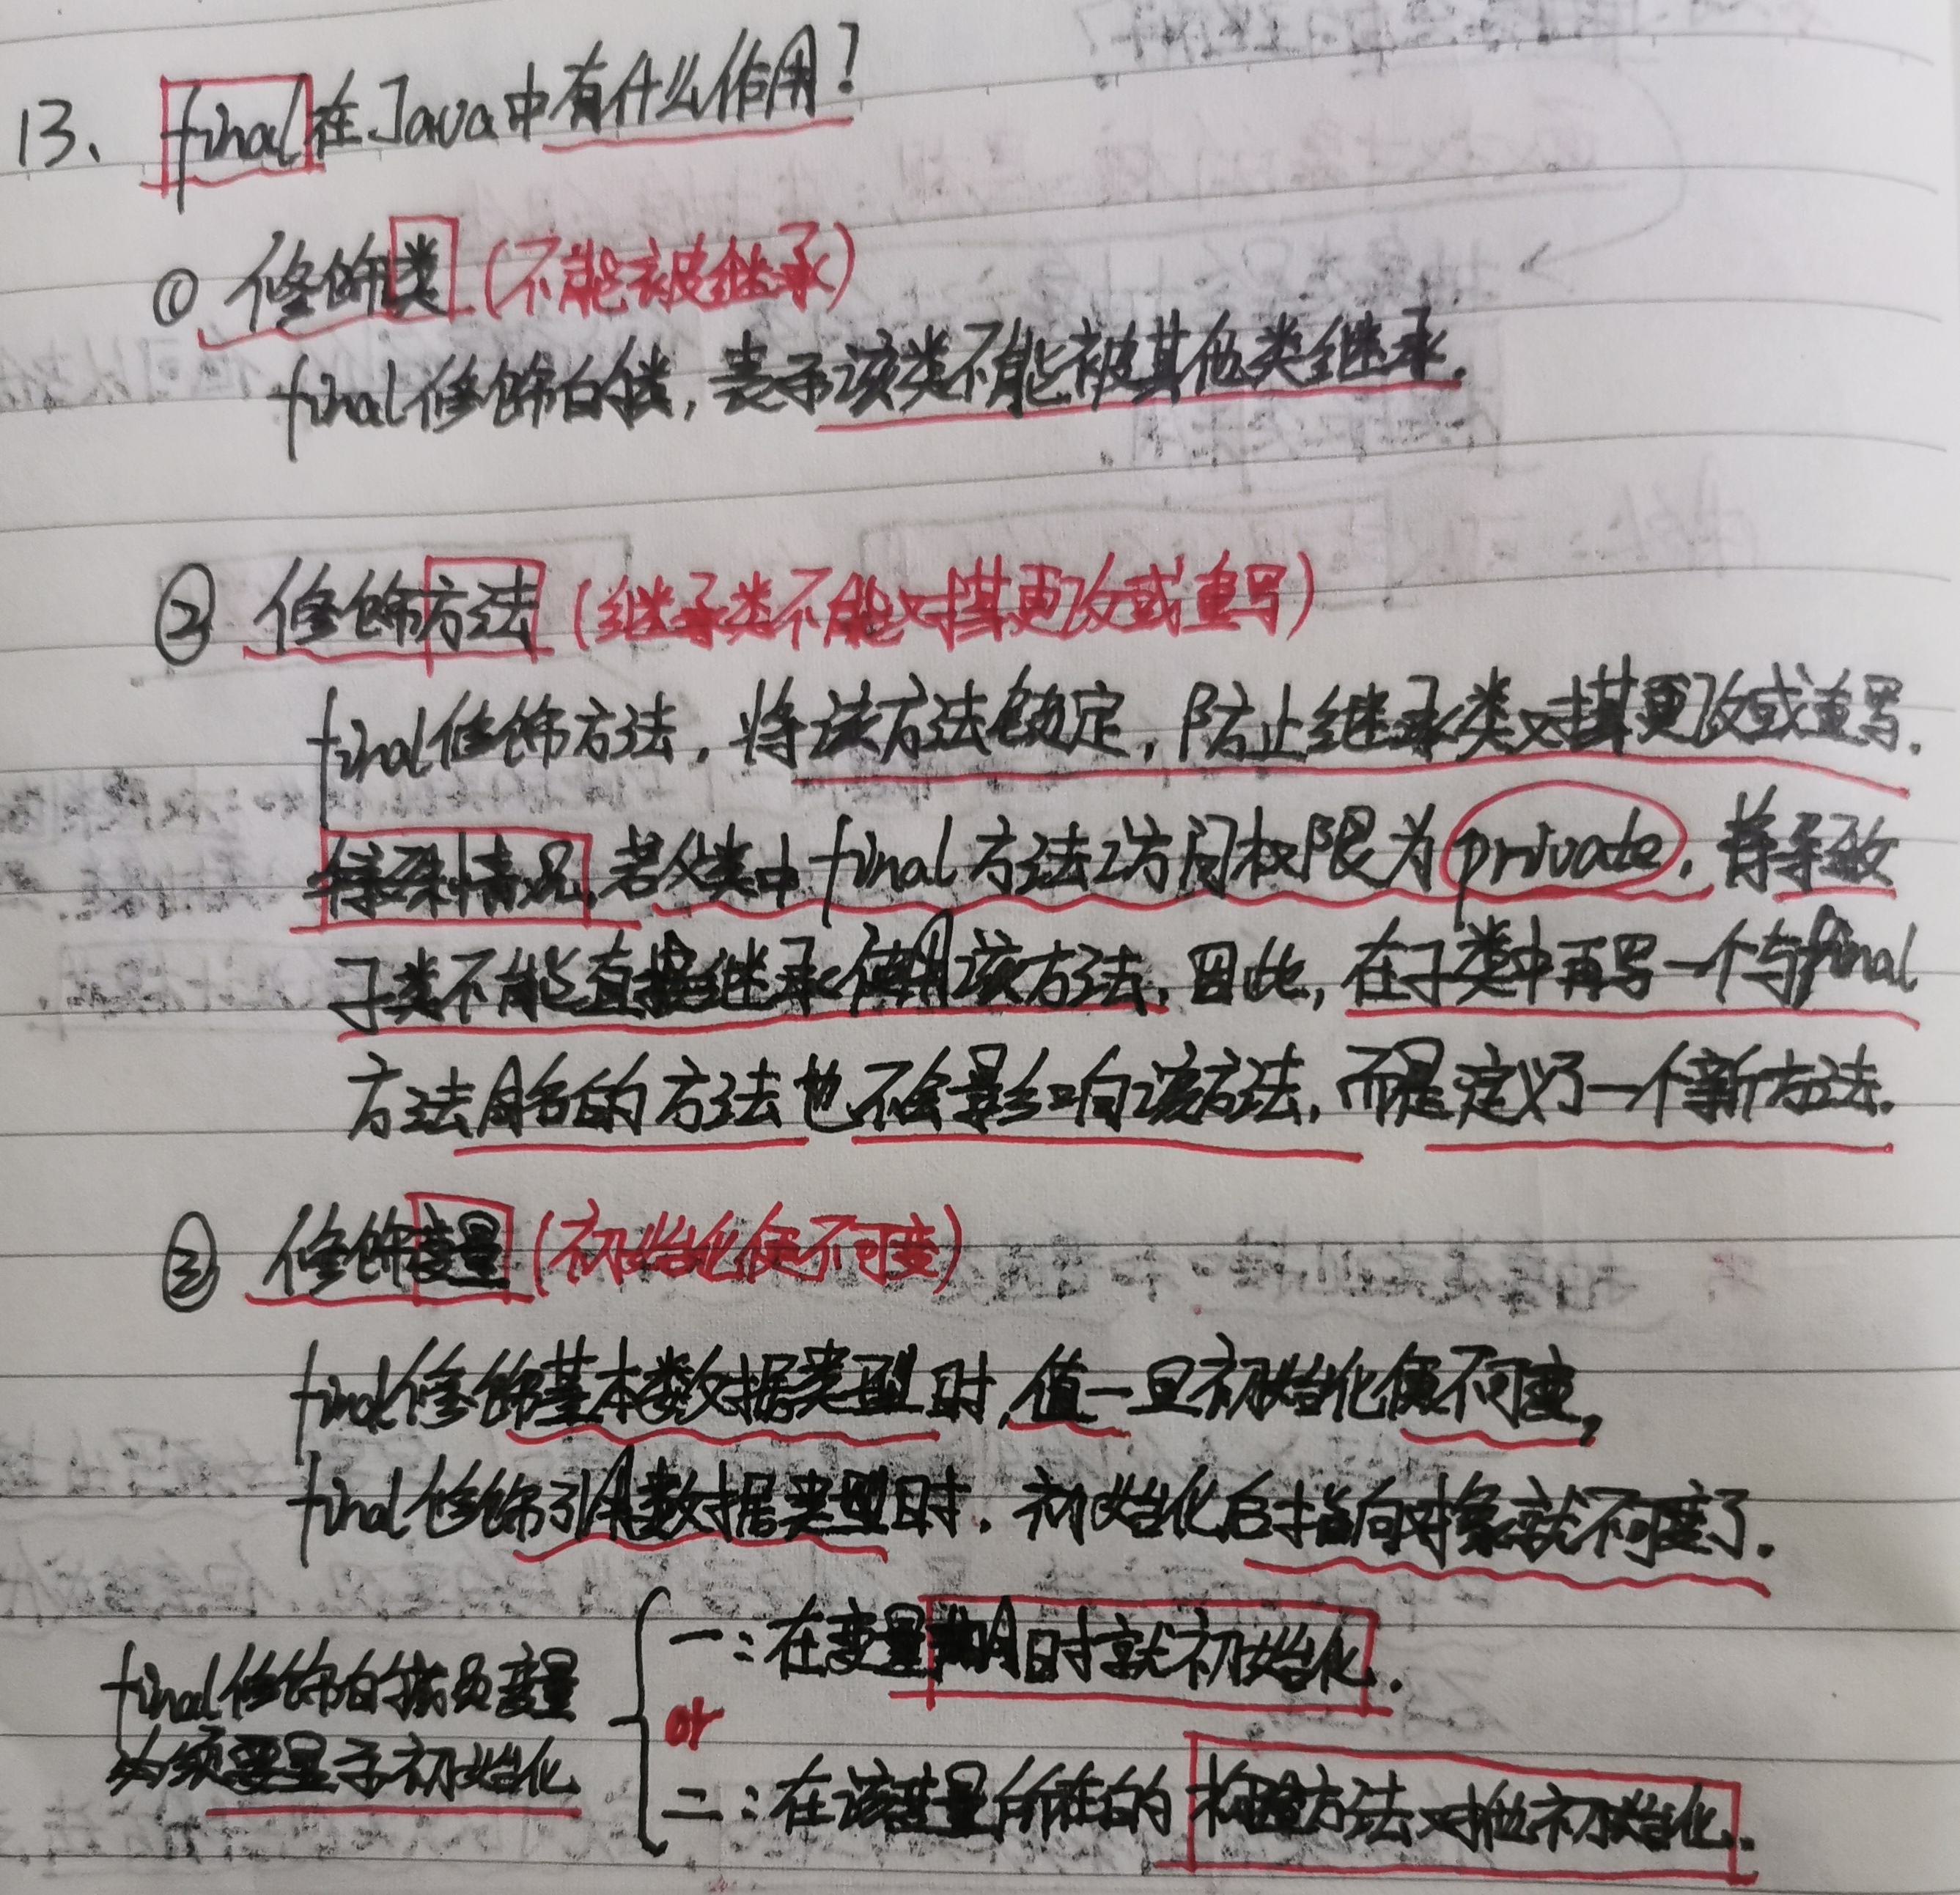 13、final在Java中有什么作用？
① 修饰类（不能被继承）
final修饰的类，表示该类不能被其他类继承.
② 修饰方法（继承类不能对其更改或重写）
final修饰方法，将该方法锁定，防止继承类对其更改或重写.
特殊情况，若父类中final方法访问权限为private，将导致
子类不能直接继承使用该方法，因此，在子类中再写一个与final
方法同名的方法也不会影响该方法，而是定义了一个新方法.
③ 修饰变量（初始化便不可变）
final修饰基本数据类型时，值一旦初始化便不可变，
final修饰引用数据类型时，初始化后指向对象就不可变了.
final修饰的成员变量
必须要显示初始化
一：在变量声明时就初始化.
or
二：在该变量所在的构造方法对他初始化.